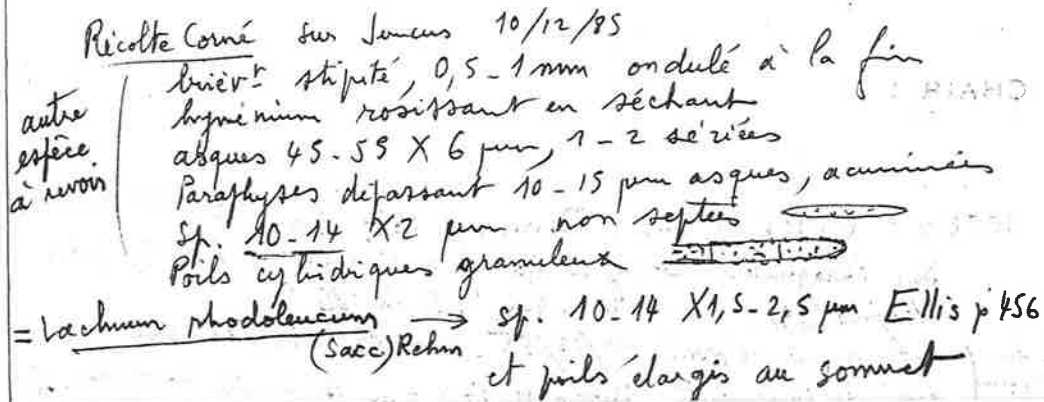 Récolte Corné sur Juncus 10/12/85
brièv.t stipité, 0,5-1 mm ondulé à la fin
hyménium rosissant en séchant
autre espèce à revoir
asques 45-55 X 6 µm, 1-2 sériées
Paraphyses dépassant 10-15 µm asques, acuminées
Sp. 10-14 X2 µm non septées
Poils cylindriques granuleux
= Lachnum rhodoleucum → sp. 10-14 X1,5-2,5 µm Ellis p 456
(Sacc) Rehm
et poils élargis au sommet
CHAIR :